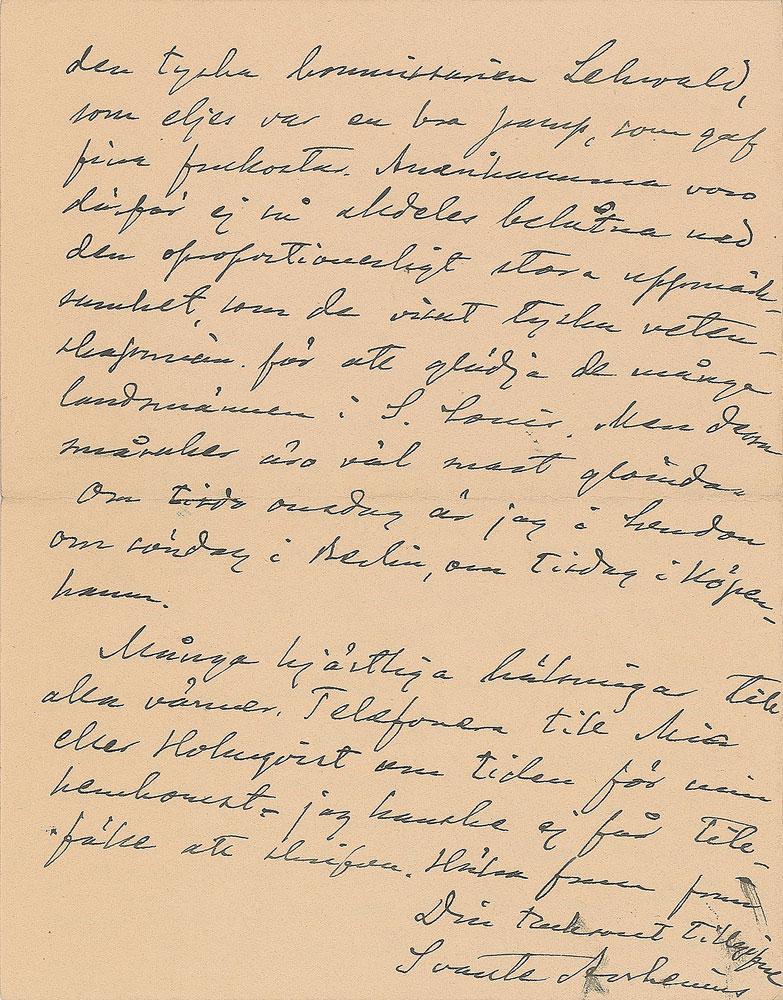 den tyska kommissarien Lehwald,
som eljes var en bra gamp, som gaf
fina frukostar. Amerikanarna voro
därför ej så alldeles belåtna med
den oproportionerligt stora uppmärk-
samhet, som de visat tyska veten-
skapsmän för att glädja de många
landsmännen i S. Louis. Men dessa
småsaker äro väl snart glömda.
Om tisda onsdag är jag i London
om söndag i Berlin, om tisdag i Köpen-
hamn.
Många hjärtliga hälsningar till
alla vänner. Telefonera till Mia
eller Holmqvist om tiden för min
hemkomst - jag kanske ej får till-
fälle att skrifva. Hälsa frun från
Din tillgifne
Svante Arrhenius